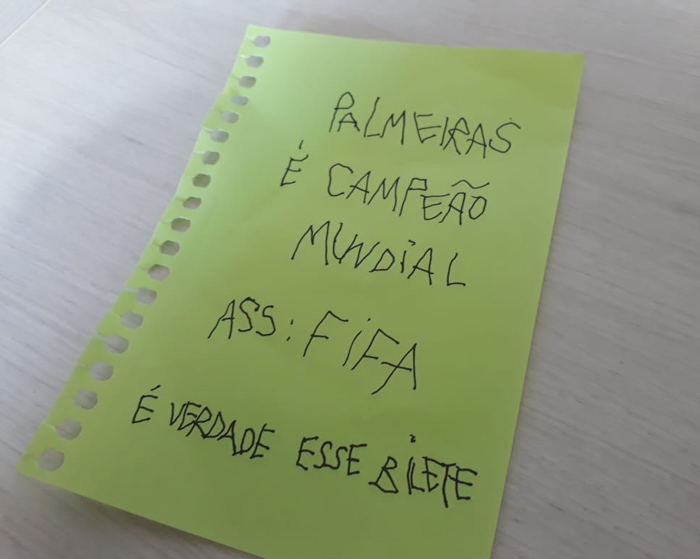 PALMEIRAS
É CAMPEÃO
MUNDIAL
ASS: FIFA
É VERDADE ESSE BILETE